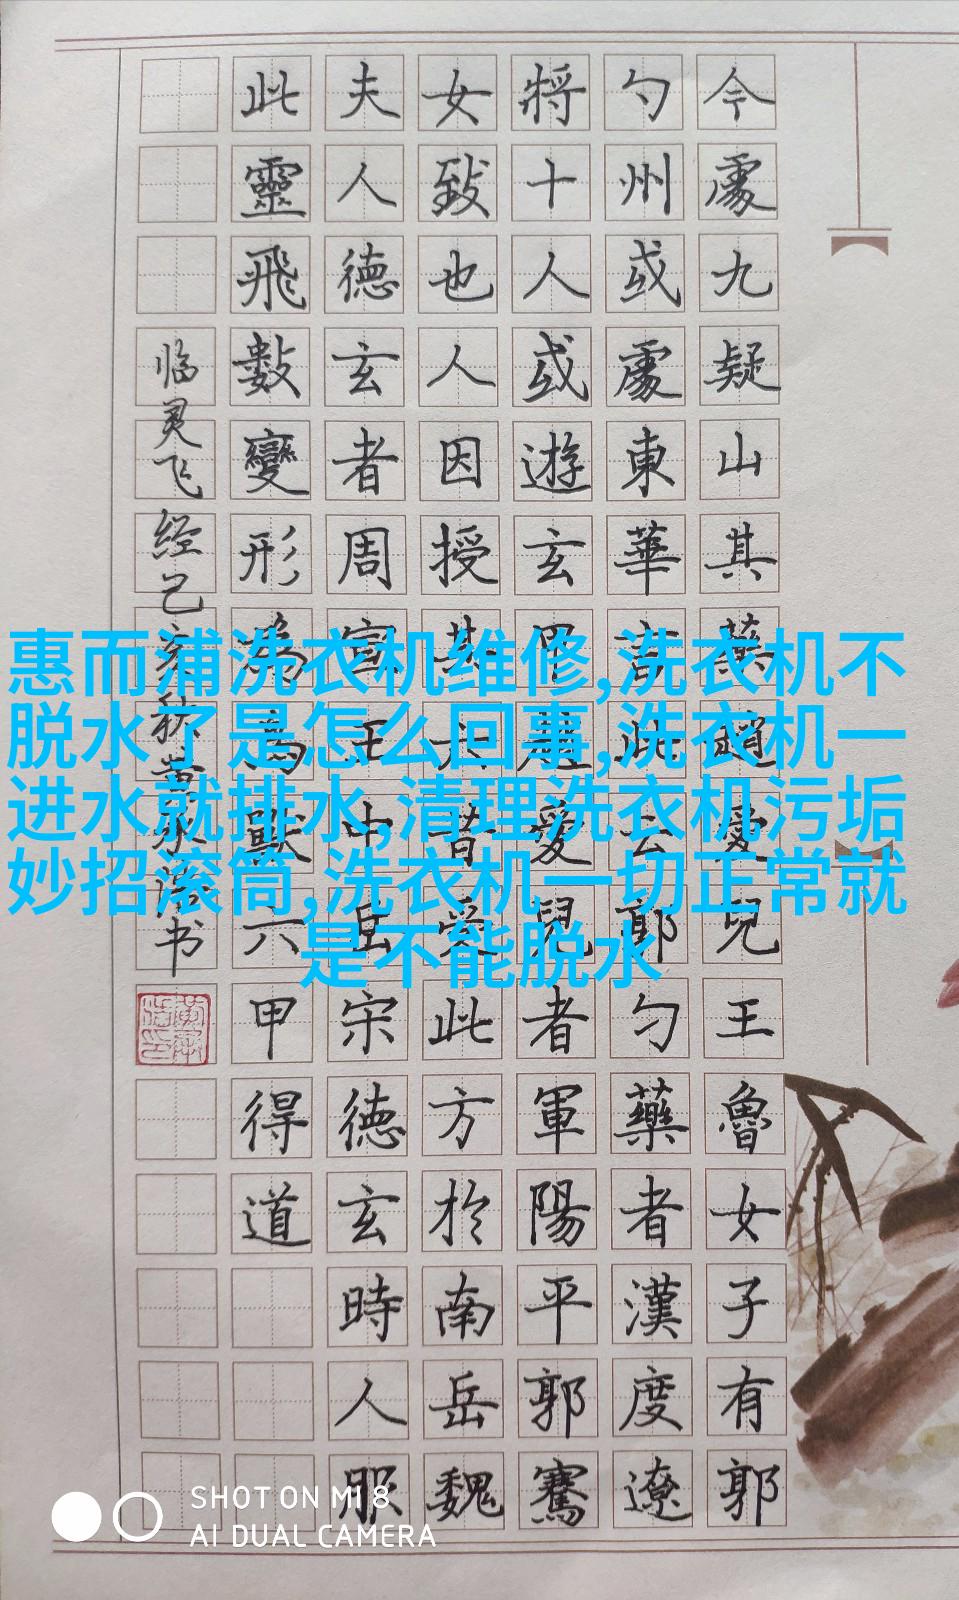 今處九疑山其藥趙愛兒王魯女子有郭
勺州或處東華言此云郭勺藥者漢度遼
將十人或遊玄甲趙愛兒者軍陽平郭騫
女致也人因授其六者受此方於南岳魏
夫人德玄者周宣王中岳宋德玄時人服
此靈飛數變形為鳥獸六甲得道
临灵飞经己亥秋黄永书
惠而浦洗衣机维修,洗衣机不
脱水了是怎么回事,洗衣机一
进水就排水,清理洗衣机污垢
妙招滚筒,洗衣机一切正常就
是不能脱水
SHOT ON MI 8
AI DUAL CAMERA